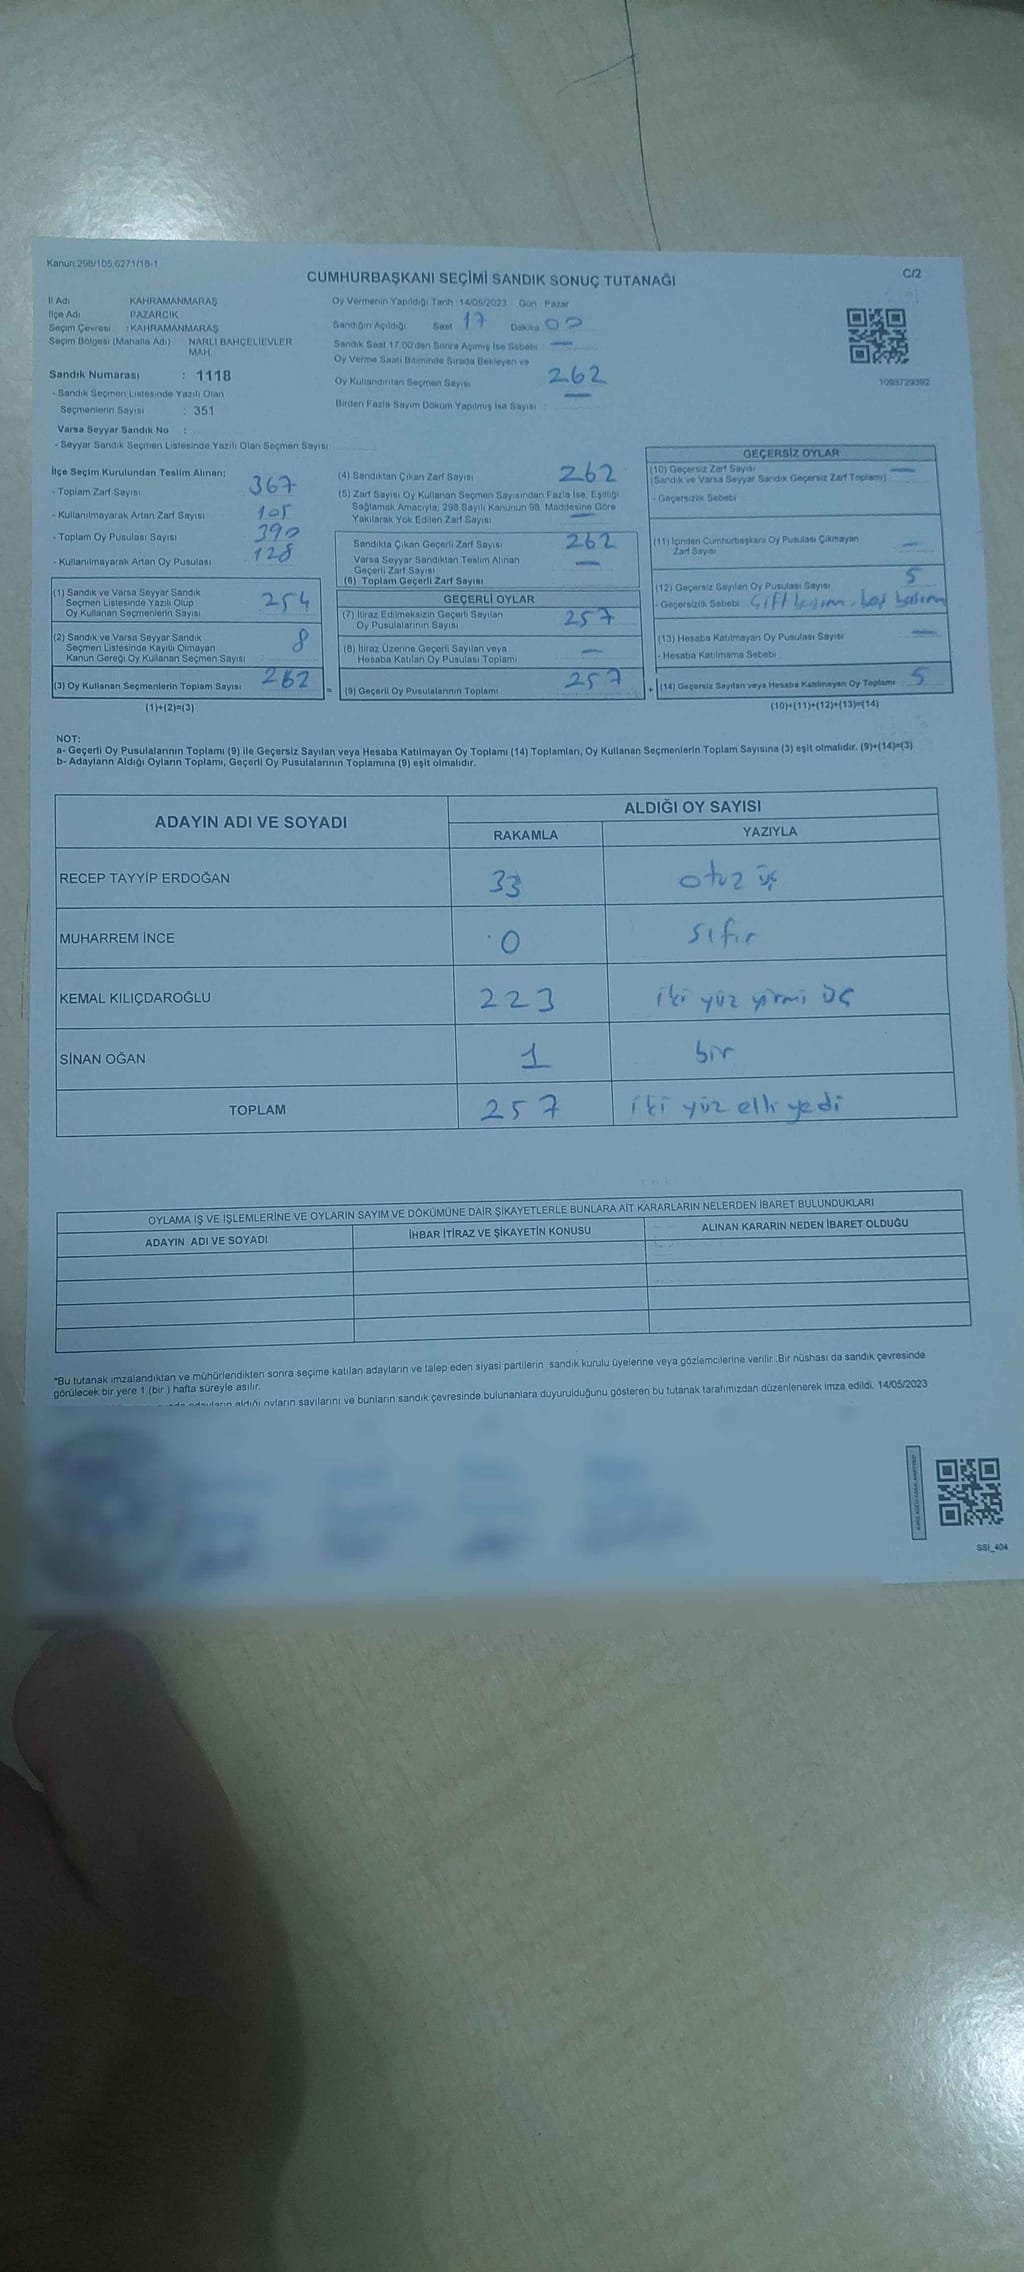 Kanun:298/105,6271/16-1
CUMHURBAŞKANI SEÇİMİ SANDIK SONUÇ TUTANAĞI
C/2
İl Adı KAHRAMANMARAŞ
İlçe Adı PAZARCIK
Seçim Çevresi : KAHRAMANMARAŞ
Seçim Bölgesi (Mahalle Adı) NARLI BAHÇELİEVLER
MAH
Sandık Numarası : 1118
- Sandık Seçmen Listesinde Yazılı Olan
Seçmenlerin Sayısı : 351
Varsa Seyyar Sandık No :
- Seyyar Sandık Seçmen Listesinde Yazılı Olan Seçmen Sayısı:
Oy Vermenin Yapıldığı Tarih :14/05/2023 Gün : Pazar
Sandığın Açıldığı Saat 17 Dakika 00
Sandık Saat 17:00'den Sonra Açılmış İse Sebebi —
Oy Verme Saati Bitiminde Sırada Bekleyen ve
Oy Kullandırılan Seçmen Sayısı 262
Birden Fazla Sayım Döküm Yapılmış İse Sayısı —
1093729392
İlçe Seçim Kurulundan Teslim Alınan;
- Toplam Zarf Sayısı 367
- Kullanılmayarak Artan Zarf Sayısı 105
- Toplam Oy Pusulası Sayısı 390
- Kullanılmayarak Artan Oy Pusulası 128
(1) Sandık ve Varsa Seyyar Sandık
Seçmen Listesinde Yazılı Olup
Oy Kullanan Seçmenlerin Sayısı 254
(2) Sandık ve Varsa Seyyar Sandık
Seçmen Listesinde Kayıtlı Olmayan
Kanun Gereği Oy Kullanan Seçmen Sayısı 8
(3) Oy Kullanan Seçmenlerin Toplam Sayısı 262
(1)+(2)=(3)
(4) Sandıktan Çıkan Zarf Sayısı 262
(5) Zarf Sayısı Oy Kullanan Seçmen Sayısından Fazla İse, Eşitliği
Sağlamak Amacıyla; 298 Sayılı Kanunun 98. Maddesine Göre
Yakılarak Yok Edilen Zarf Sayısı —
Sandıkta Çıkan Geçerli Zarf Sayısı 262
Varsa Seyyar Sandıktan Teslim Alınan
Geçerli Zarf Sayısı —
(6) Toplam Geçerli Zarf Sayısı
GEÇERLİ OYLAR
(7) İtiraz Edilmeksizin Geçerli Sayılan
Oy Pusulalarının Sayısı 257
(8) İtiraz Üzerine Geçerli Sayılan veya
Hesaba Katılan Oy Pusulası Toplamı —
= (9) Geçerli Oy Pusulalarının Toplamı 257
GEÇERSİZ OYLAR
(10) Geçersiz Zarf Sayısı —
(Sandık ve Varsa Seyyar Sandık Geçersiz Zarf Toplamı)
- Geçersizlik Sebebi
(11) İçinden Cumhurbaşkanı Oy Pusulası Çıkmayan
Zarf Sayısı —
(12) Geçersiz Sayılan Oy Pusulası Sayısı 5
- Geçersizlik Sebebi Çift basım. boş basım
(13) Hesaba Katılmayan Oy Pusulası Sayısı —
- Hesaba Katılmama Sebebi
+ (14) Geçersiz Sayılan veya Hesaba Katılmayan Oy Toplamı 5
(10)+(11)+(12)+(13)=(14)
NOT:
a- Geçerli Oy Pusulalarının Toplamı (9) ile Geçersiz Sayılan veya Hesaba Katılmayan Oy Toplamı (14) Toplamları, Oy Kullanan Seçmenlerin Toplam Sayısına (3) eşit olmalıdır. (9)+(14)=(3)
b- Adayların Aldığı Oyların Toplamı, Geçerli Oy Pusulalarının Toplamına (9) eşit olmalıdır.
ADAYIN ADI VE SOYADI ALDIĞI OY SAYISI
RAKAMLA YAZIYLA
RECEP TAYYİP ERDOĞAN 33 otuz üç
MUHARREM İNCE 0 sıfır
KEMAL KILIÇDAROĞLU 223 iki yüz yirmi üç
SİNAN OĞAN 1 bir
TOPLAM 257 iki yüz elli yedi
OYLAMA İŞ VE İŞLEMLERİNE VE OYLARIN SAYIM VE DÖKÜMÜNE DAİR ŞİKAYETLERLE BUNLARA AİT KARARLARIN NELERDEN İBARET BULUNDUKLARI
ADAYIN ADI VE SOYADI İHBAR İTİRAZ VE ŞİKAYETİN KONUSU ALINAN KARARIN NEDEN İBARET OLDUĞU
*Bu tutanak imzalandıktan ve mühürlendikten sonra seçime katılan adayların ve talep eden siyasi partilerin sandık kurulu üyelerine veya gözlemcilerine verilir .Bir nüshası da sandık çevresinde
görülecek bir yere 1 (bir ) hafta süreyle asılır.
adayların aldığı oyların sayılarını ve bunların sandık çevresinde bulunanlara duyurulduğunu gösteren bu tutanak tarafımızdan düzenlenerek imza edildi. 14/05/2023
SSI_404